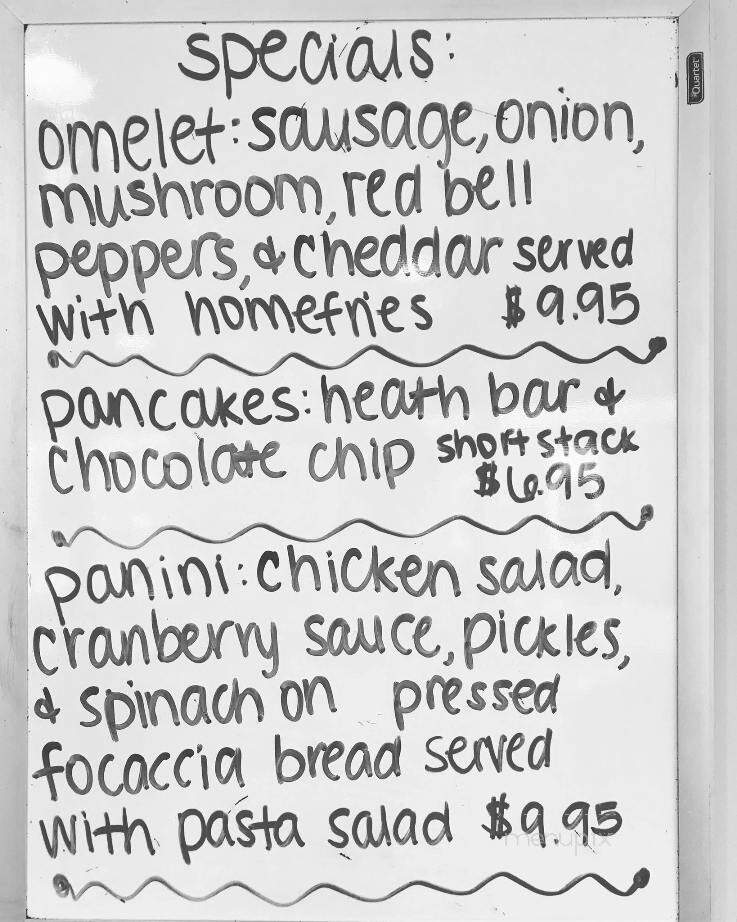 specials:
omelet: sausage, onion,
mushroom, red bell
peppers, & cheddar served
with homefries $9.95
pancakes: heath bar &
chocolate chip short stack
$6.95
panini: chicken salad,
cranberry sauce, pickles,
& spinach on pressed
focaccia bread served
with pasta salad $9.95
menupix
Quartet